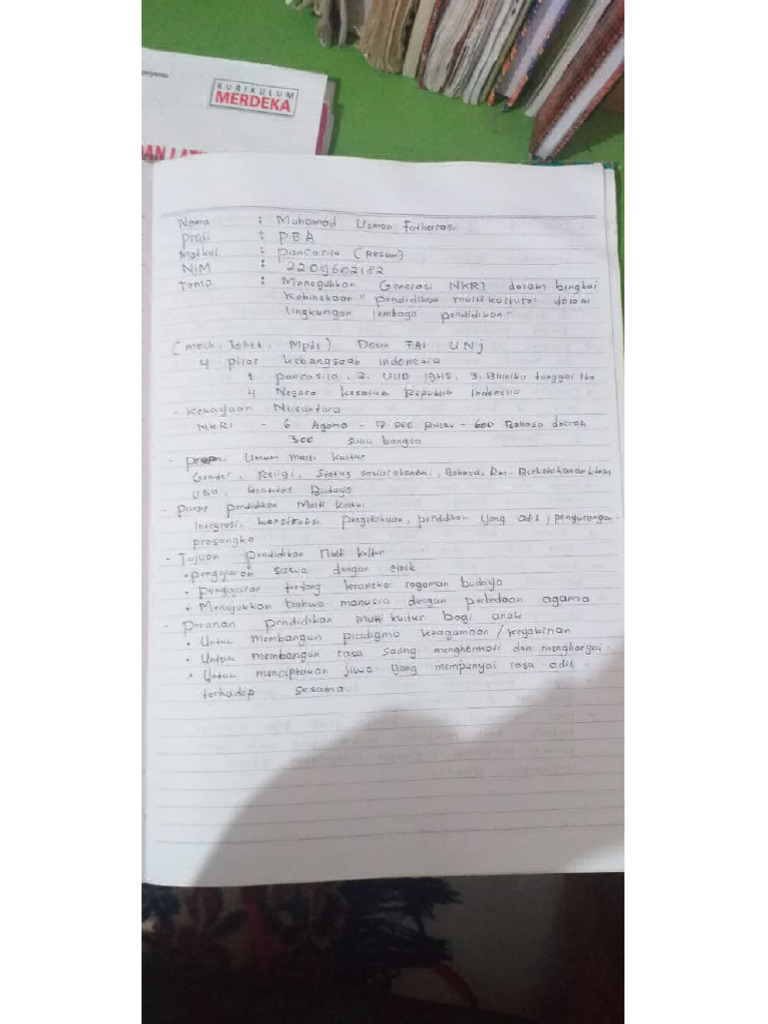 KURIKULUM
MERDEKA
Nama : Muhamad Usman
Prodi : PBA
Matkul : pancasila (Resum)
NIM : 2209602182
Tema : Meneguhkan Generasi NKRI dalam bingkai
Kebinekaan "pendidikan multikultural dalam
lingkungan lembaga pendidikan"
Dosen FAI UNJ
4 pilar kebangsaan indonesia
1 pancasila. 2. UUD 1945. 3. Bhinika tunggal Ika
4 Negara Kesatua Republik Indonesia
- Kekayaan Nusantara
NKRI - 6 Agama - 17.000 pulau - 600 Bahasa daerah
300 suku bangsa
- Umum multi kultur
Gender, Religi, Status sosial ekonomi, Bahasa, Ras.
Usia, Identitas Budaya
- pendidikan Multi kultur
Integrasi, pengetahuan, pendidikan yang adil, pengurangan
prasangka
- Tujuan pendidikan Multi kultur
• pengajaran siswa dengan etnik
• pengajaran tentang keraneka ragaman budaya
• Menujukkan bahwa manusia dengan perbedaan agama
- peranan pendidikan multi kultur bagi anak
• Untuk membangun pradigma keagamaan / keyakinan
• Untuk membangun rasa saling menghormati dan menghargai
• Untuk menciptakan jiwa yang mempunyai rasa adil
terhadap sesama.